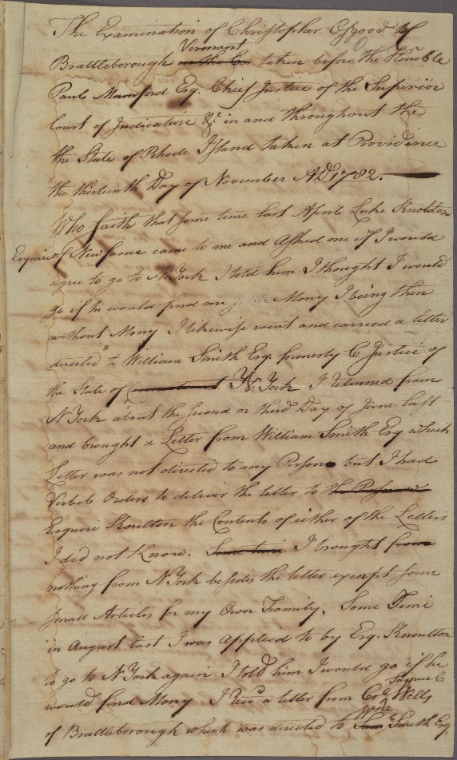 The Examination of Christopher Osgood of
Vermont
Brattleborough taken before the Honble
Paul Mumford Esq. Chief Justice of the Superior
Court of Judicature &c in and throughout the
the State of Rhode Island taken at Providence
the thirteenth Day of November AD 1782.
Who saith that some time last April Luke Knolton
Esquire of Newfame came to me and Asked me if I would
agree to go to N York I told him I thought I would
go if he would find me Mony I being then
without Mony I likewise went and carried a letter
directed to William Smith Esq. formerly C Justice of
the State of N. York I returned from
N York about the second or third Day of June last
and brought a Letter from William Smith Esq which
Letter was not directed to any Person but I had
Verbob Orders to deliver the letter to the
Esquire Knoulton the Contents of either of the Letters
I did not know. Some time I brought from
nothing from N York besides the letter except some
small Articles for my Own Family. Some Time
in August last I was applied to by Esq. Knoulton
to go to N York again I told him I would go if he
would find Mony I Recd a letter from Colo Samuel Wells
of Brattleborough which was directed to Wm Smith Esq